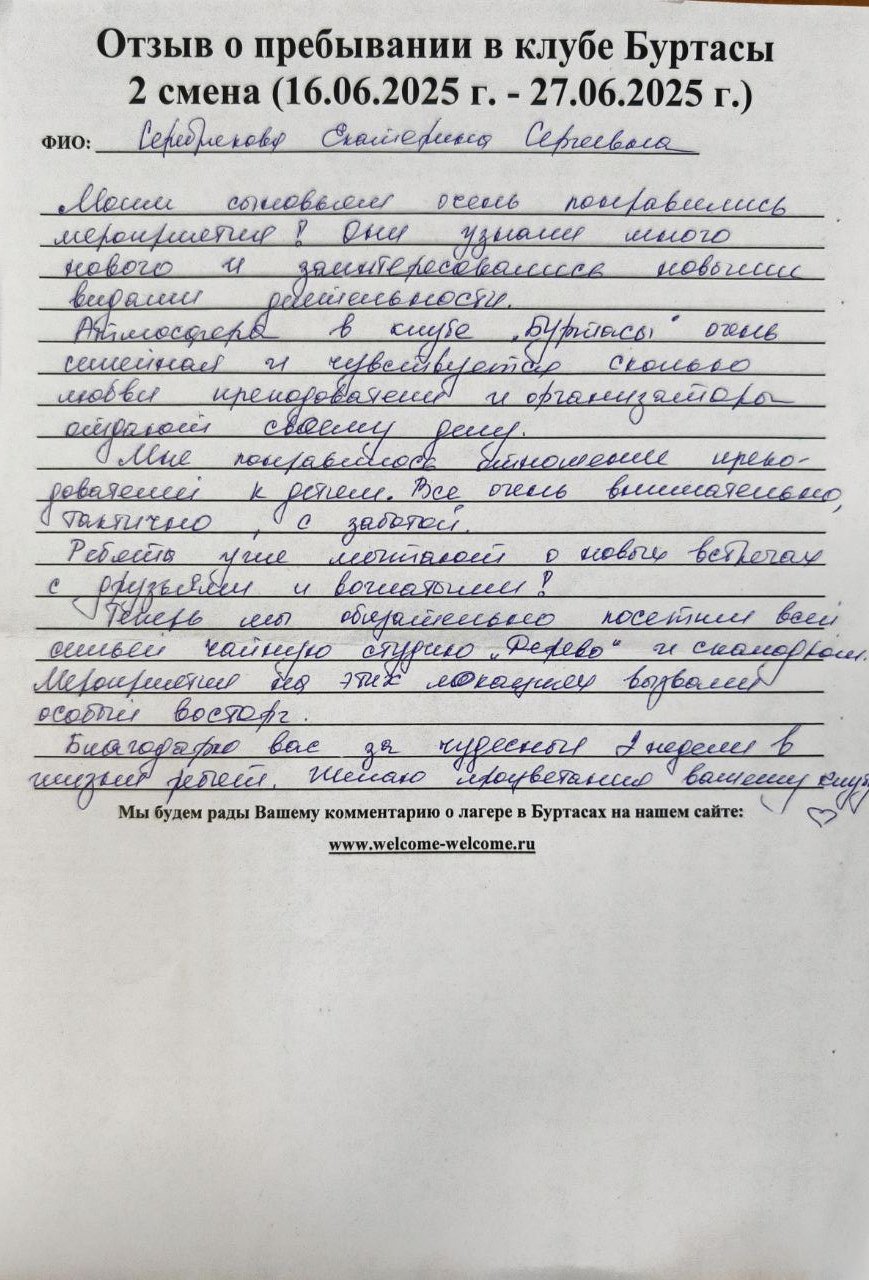 Отзыв о пребывании в клубе Буртасы
2 смена (16.06.2025 г. - 27.06.2025 г.)
ФИО: Серебрякова Екатерина Сергеевна
Моим сыновьям очень понравились
мероприятия! Они узнали много
нового и заинтересовались новыми
видами деятельности.
Атмосфера в клубе „Буртасы" очень
семейная и чувствуется сколько
любви преподаватели и организаторы
отдают своему делу.
Мне понравилось отношение препо-
давателей к детям. Все очень внимательно,
тактично, с заботой.
Ребята уже мечтают о новых встречах
с друзьями и вожатыми!
Теперь мы обязательно посетим всей
семьёй чайную студию „Дерево" и скалодром.
Мероприятия на этих локациях вызвали
особый восторг.
Благодарю вас за чудесные 2 недели в
жизни ребят. Желаю процветания вашему клубу
Мы будем рады Вашему комментарию о лагере в Буртасах на нашем сайте:
www.welcome-welcome.ru